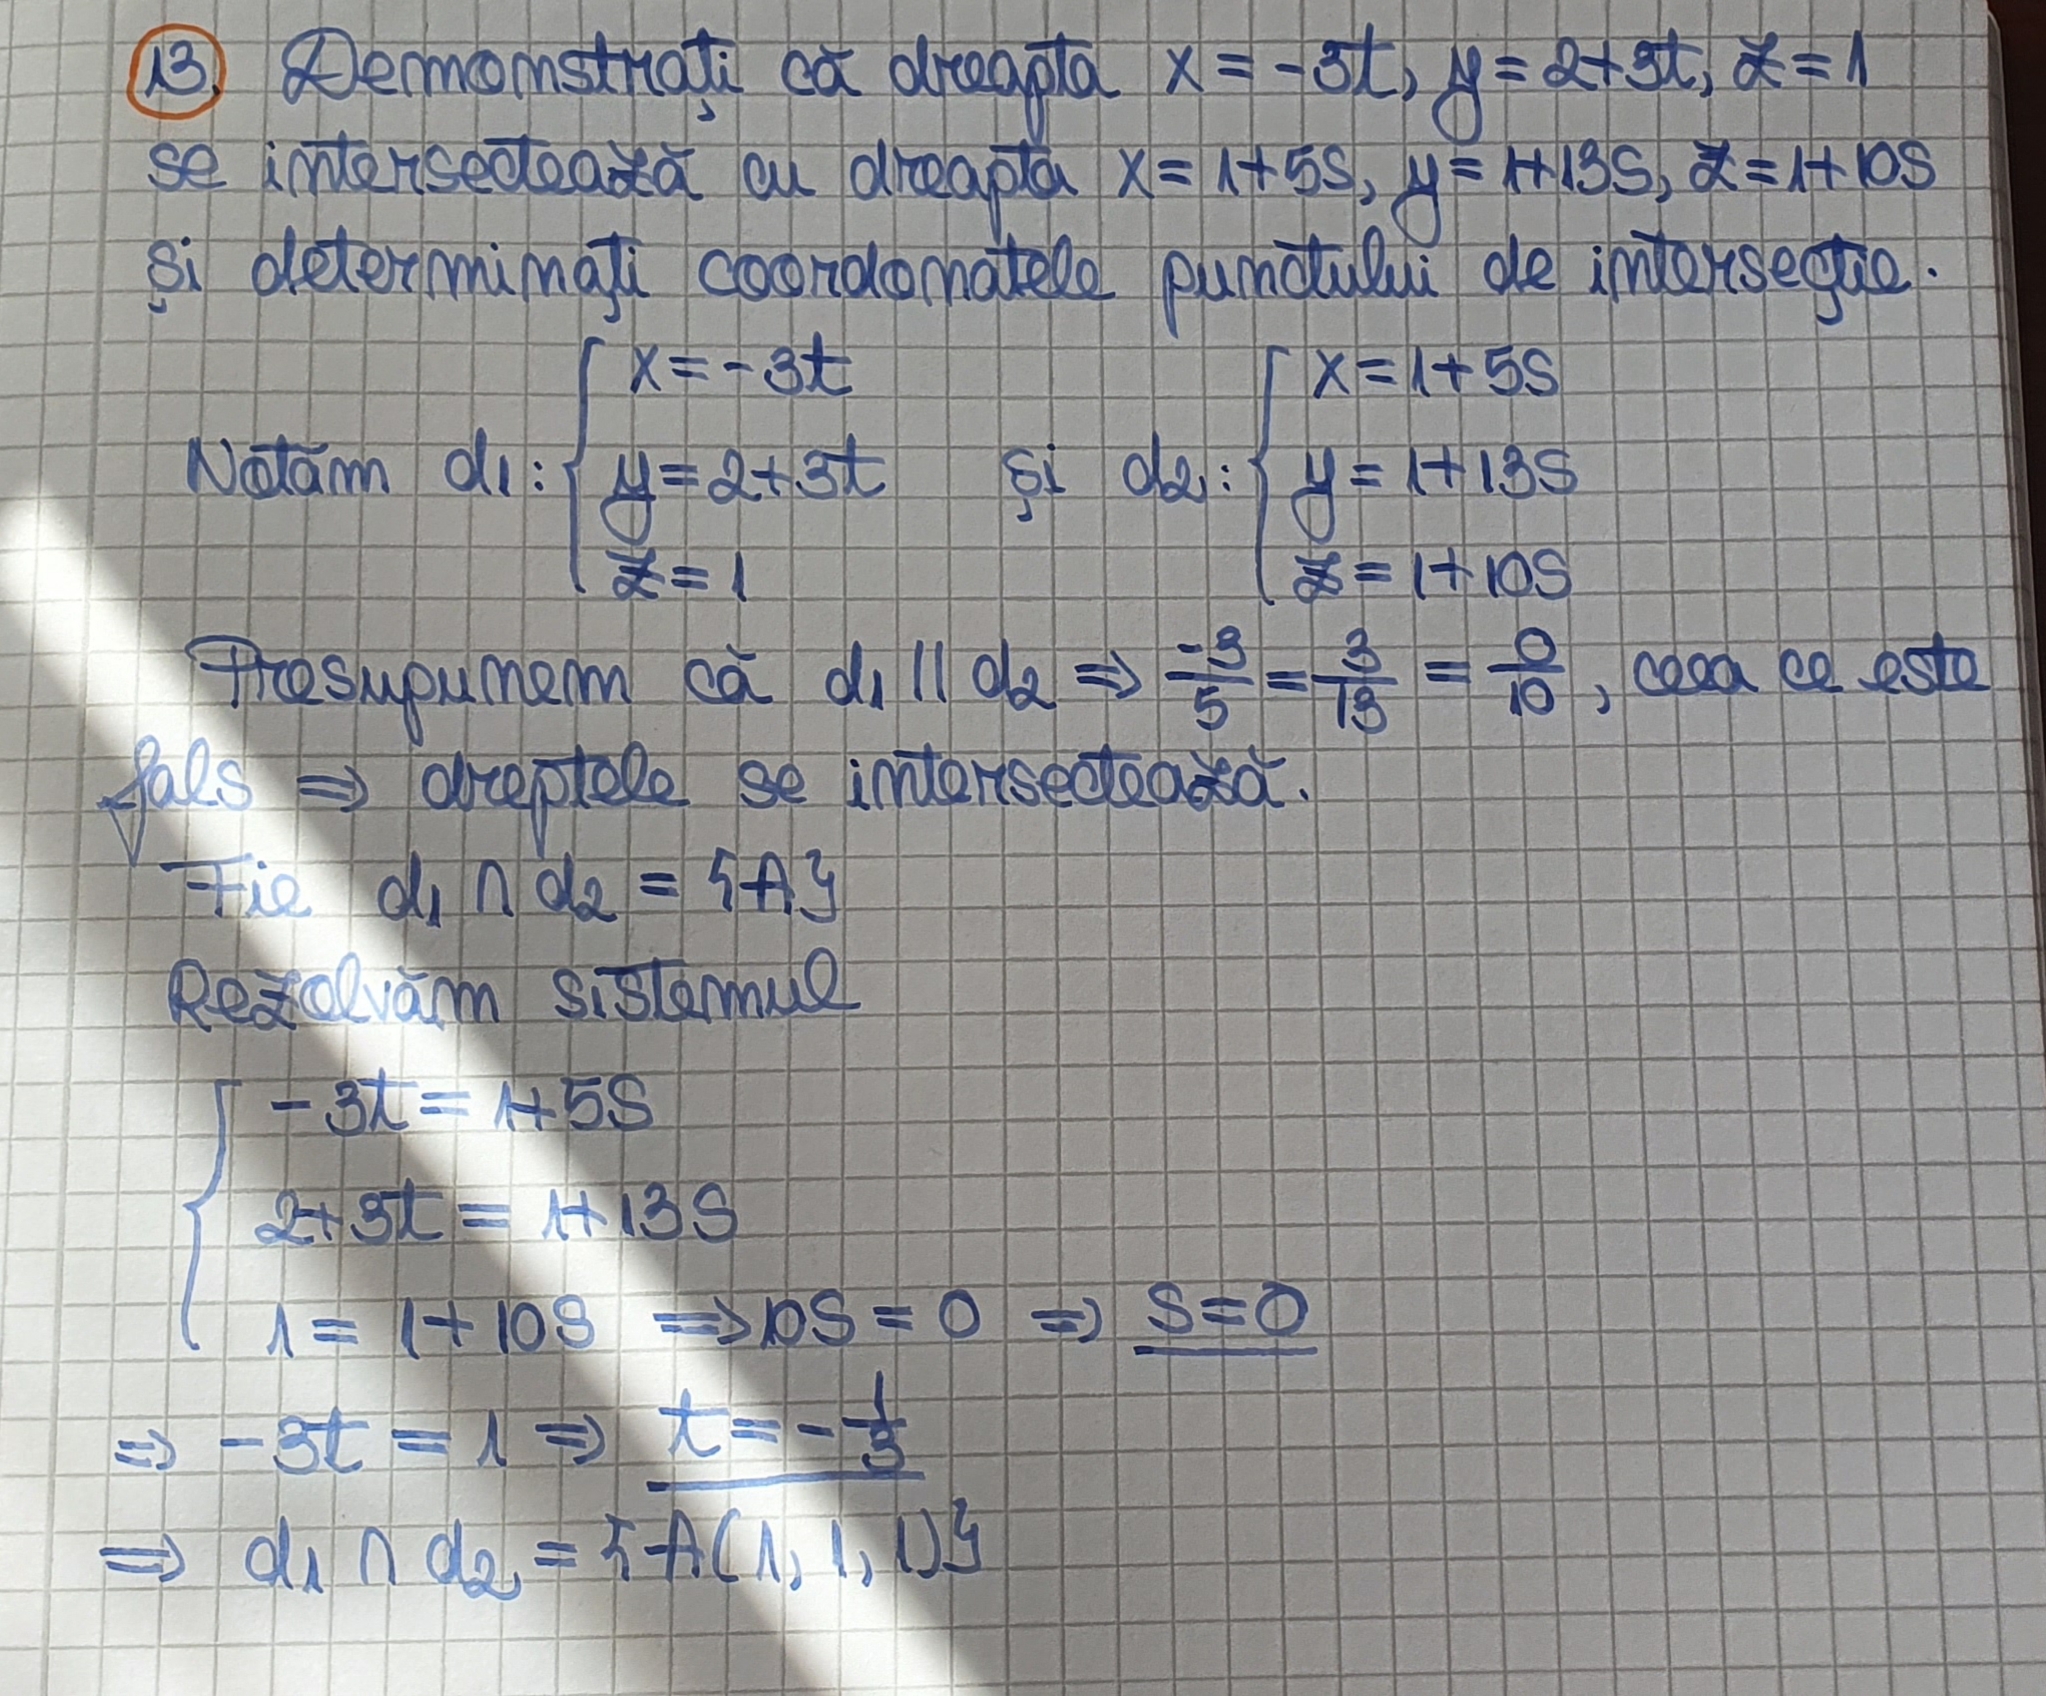 13. Demonstrați că dreapta x = -3t, y = 2+3t, z = 1
se intersectează cu dreapta x = 1+5s, y = 1+13s, z = 1+10s
și determinați coordonatele punctului de intersecție.
Notăm d1: { x = -3t y = 2+3t z = 1 și d2: { x = 1+5s y = 1+13s z = 1+10s
Presupunem că d1 || d2 ⇒ -3/5 = 3/13 = 0/10, ceea ce este
fals ⇒ dreptele se intersectează.
Fie d1 ∩ d2 = {A}
Rezolvăm sistemul
{ -3t = 1+5s
2+3t = 1+13s
1 = 1+10s ⇒ 10s = 0 ⇒ s = 0
⇒ -3t = 1 ⇒ t = -1/3
⇒ d1 ∩ d2 = {A(1, 1, 1)}